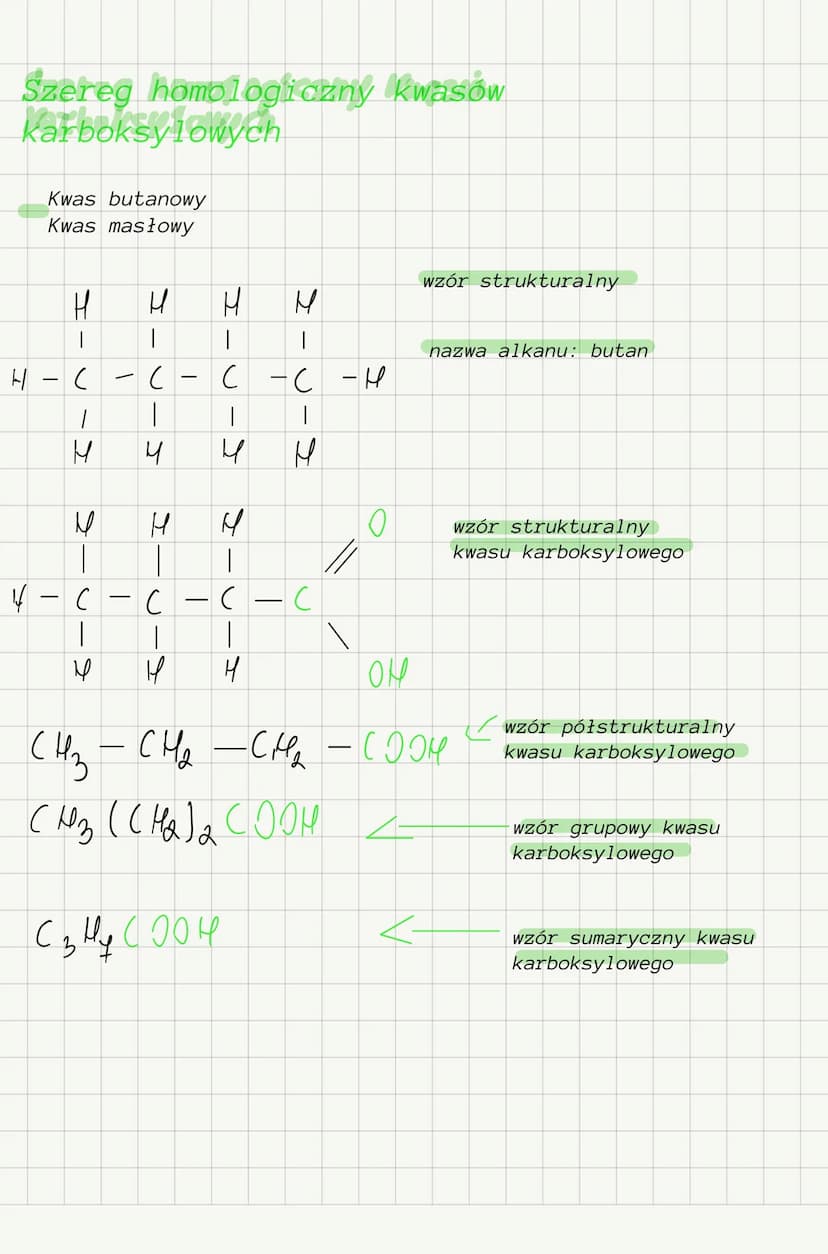 Szereg homologiczny kwasów
karboksylowych
Kwas butanowy
Kwas masłowy
wzór strukturalny
nazwa alkanu: butan
H H H H
| | | |
H – C – C – C – C – H
| | | |
H H H H
wzór strukturalny
kwasu karboksylowego
H H H O
| | | //
H – C – C – C – C
| | | \
H H H OH
CH₃ – CH₂ – CH₂ – COOH
wzór półstrukturalny
kwasu karboksylowego
CH₃(CH₂)₂COOH
wzór grupowy kwasu
karboksylowego
C₃H₇COOH
wzór sumaryczny kwasu
karboksylowego